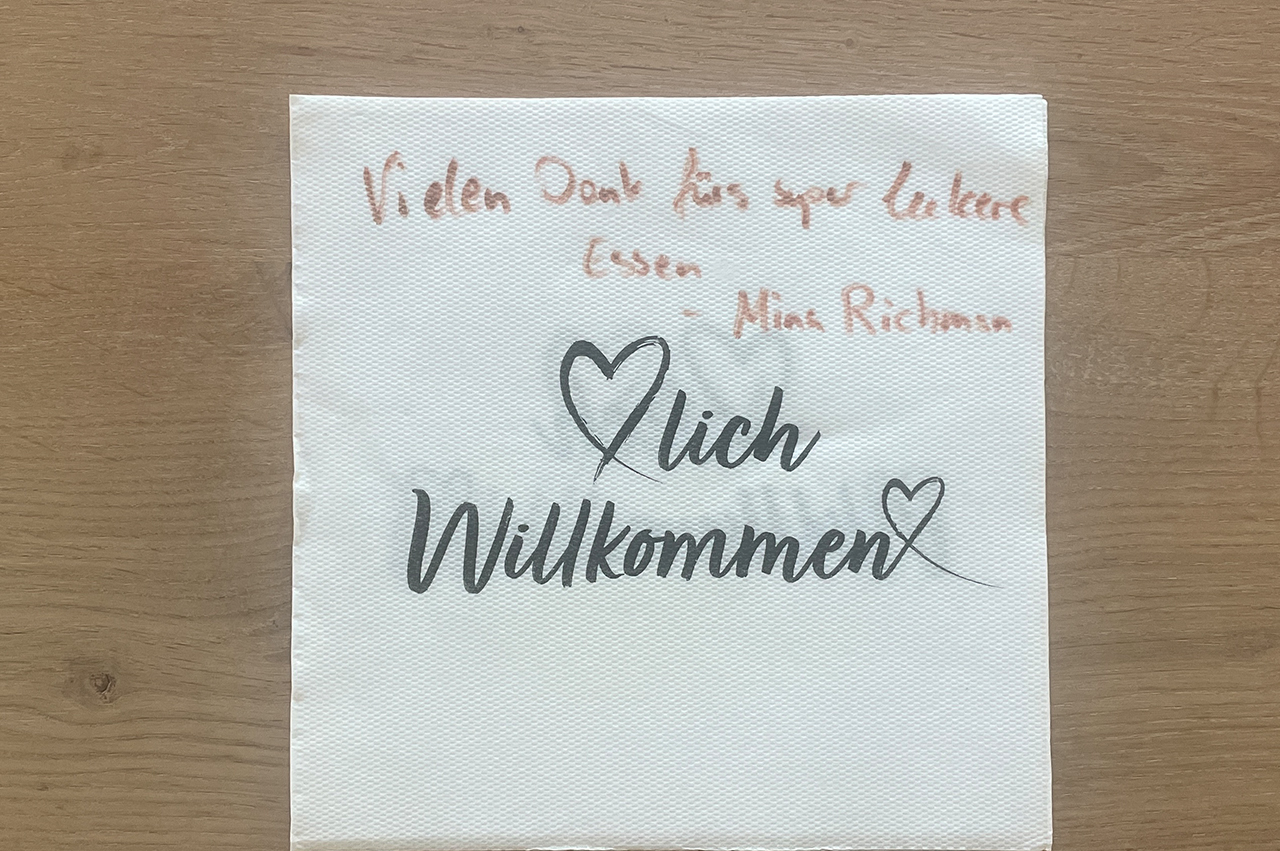 Vielen Dank fürs super leckere
Essen
- Mina Richman
lich
Willkommen